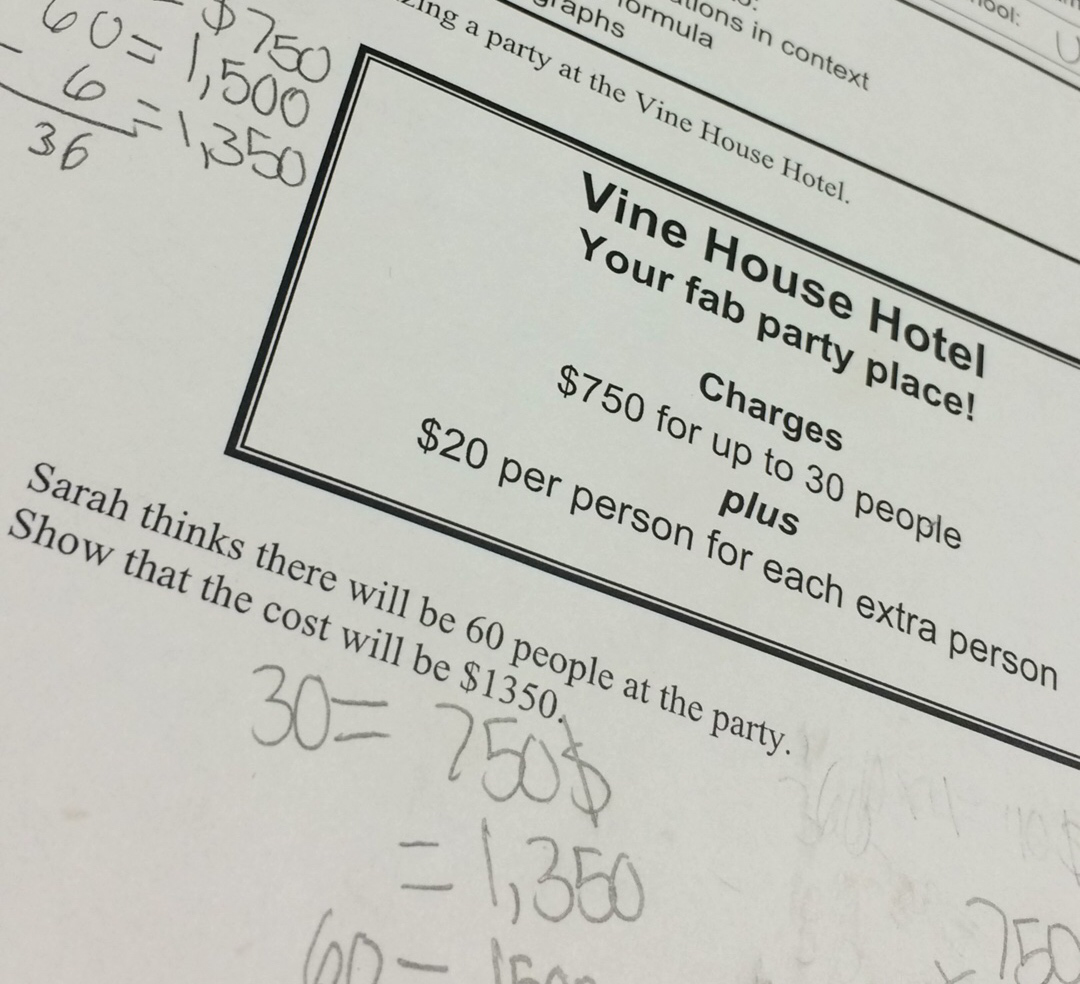 $750
60 = 1,500
- 6 = 1,350
36
graphs
formula
in context
a party at the Vine House Hotel.
Vine House Hotel
Your fab party place!
Charges
$750 for up to 30 people
plus
$20 per person for each extra person
Sarah thinks there will be 60 people at the party.
Show that the cost will be $1350.
30= 750$
= 1,350
60 =
750